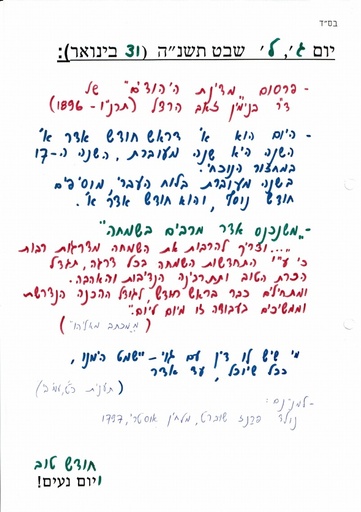 בס״ד
יום ג׳, ל׳ שבט תשנ״ה (31 בינואר):
- פרסום "מדינת היהודים" של
ד״ר בנימין זאב הרצל (תרנ״ו - 1896)
- היום הוא א׳ דראש חודש אדר א׳
השנה היא שנה מעוברת, השנה ה-17
במחזור הנוכחי.
בשנה מעוברת בלוח העברי, מוסיפים
חודש נוסף, והוא חודש אדר א׳.
- "משנכנס אדר מרבים בשמחה"
"...וצריך להרבות את השמחה מדרגות רבות
כי ע״י התחדשות השמחה בכל דרגה, תגדל
הכרת הטוב ותתרבינה הנדיבות והאהבה.
ומתחילים כבר בראש חודש, לגודל ההכנה הנדרשת
וממשיכים בעבודה זו מיום ליום."
(מכתב מאליהו)
מי שיש לו דין עם גוי - ישמט הימנו,
ככל שיוכל, עד אדר
(תענית כט, ע״ב)
- למנינם:
נולד פרנץ שוברט, מלחין אוסטרי, 1797
חודש טוב
ויום נעים!